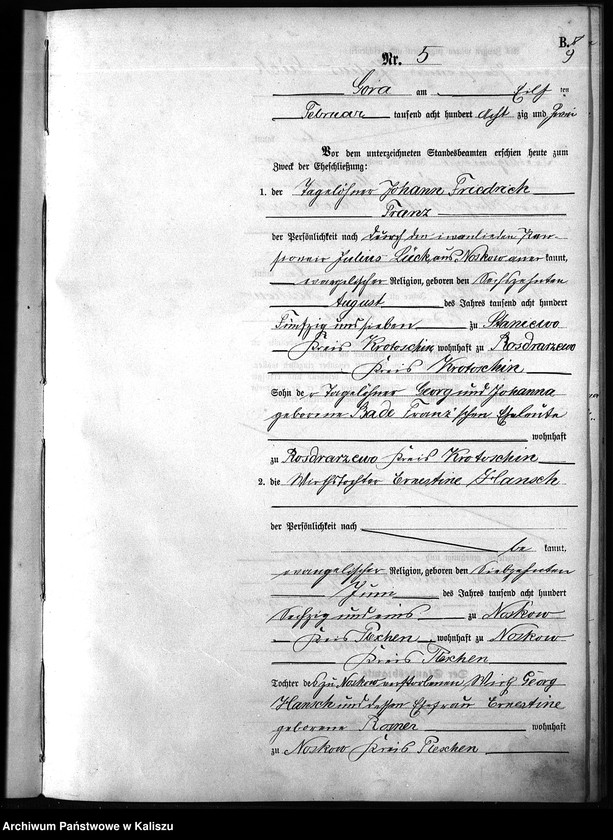 B. 9
Nr. 5
Gora am Eilf ten
Februar tausend acht hundert Acht zig und zwei
Vor dem unterzeichneten Standesbeamten erschien heute zum
Zweck der Eheschließung:
1. der Tagelöhner Johann Friedrich
Franz
der Persönlichkeit nach durch den
Julius Lück aus Noskow aner kannt,
evangelischer Religion, geboren den Sechszehnten
August des Jahres tausend acht hundert
Fünfzig und sieben zu Staniewo
Kreis Krotoschin, wohnhaft zu Rosdrarzewo
Kreis Krotoschin
Sohn de r Tagelöhner Georg und Johanna
geborene Bade Franz'schen Eheleute
wohnhaft
zu Rosdrarzewo Kreis Krotoschin
2. die Wirthstochter Ernestine Hansch
der Persönlichkeit nach
be kannt,
evangelischer Religion, geboren den Siebzehnten
Juni des Jahres tausend acht hundert
Sechzig und eins zu Noskow
Kreis Pleschen, wohnhaft zu Noskow
Kreis Pleschen
Tochter des zu Noskow verstorbenen Wirth Georg
Hansch und dessen Ehefrau Ernestine
geborene wohnhaft
zu Noskow Kreis Pleschen
Archiwum Państwowe w Kaliszu